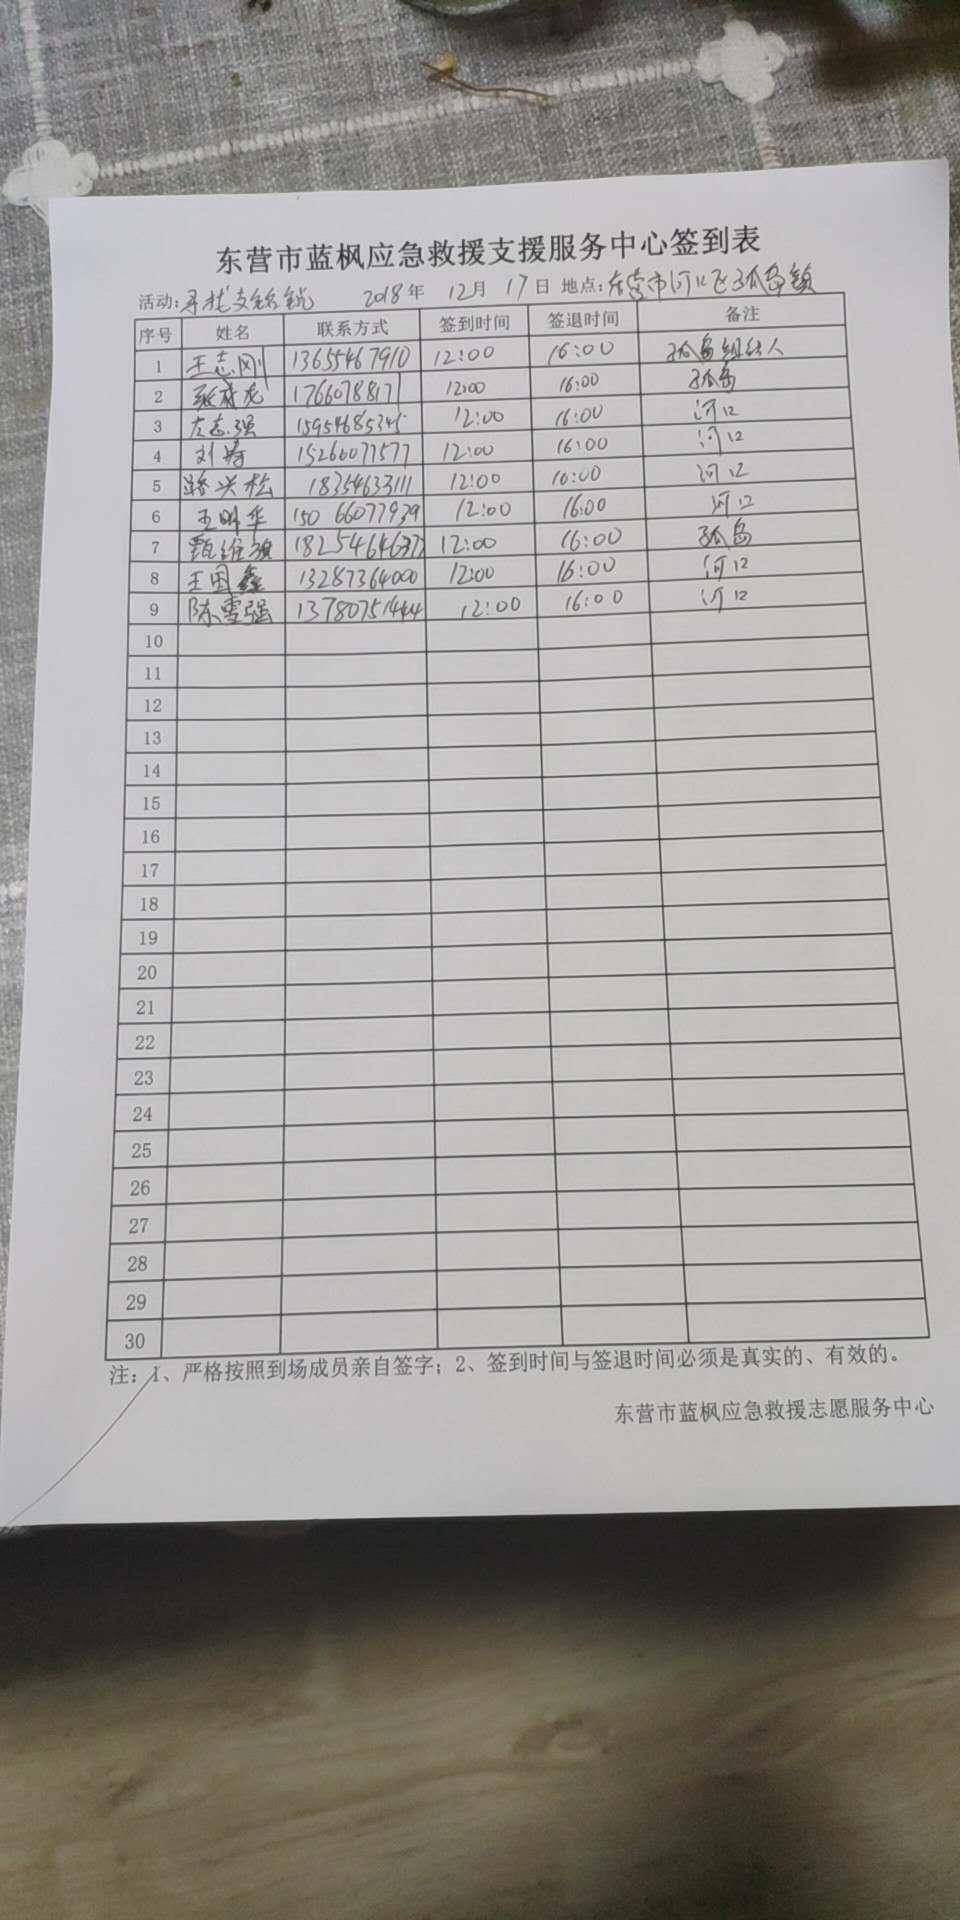 东营市蓝枫应急救援支援服务中心签到表
活动:寻找支铭锐 2018年 12月 17日 地点:东营市河口区孤岛镇
序号 姓名 联系方式 签到时间 签退时间 备注
1 王志刚 13655467910 12:00 16:00 孤岛组织人
2 张龙 17660788171 12:00 16:00 孤岛
3 左志强 15954685345 12:00 16:00 河口
4 刘涛 15266077577 12:00 16:00 河口
5 兴松 18354633111 12:00 16:00 河口
6 王明华 150 66077939 12:00 16:00 河口
7 甄维强 12:00 16:00 孤岛
8 王国鑫 13287364000 12:00 16:00 河口
9 陈雪强 13780751444 12:00 16:00 河口
10
11
12
13
14
15
16
17
18
19
20
21
22
23
24
25
26
27
28
29
30
注: 1、严格按照到场成员亲自签字; 2、签到时间与签退时间必须是真实的、有效的。
东营市蓝枫应急救援志愿服务中心